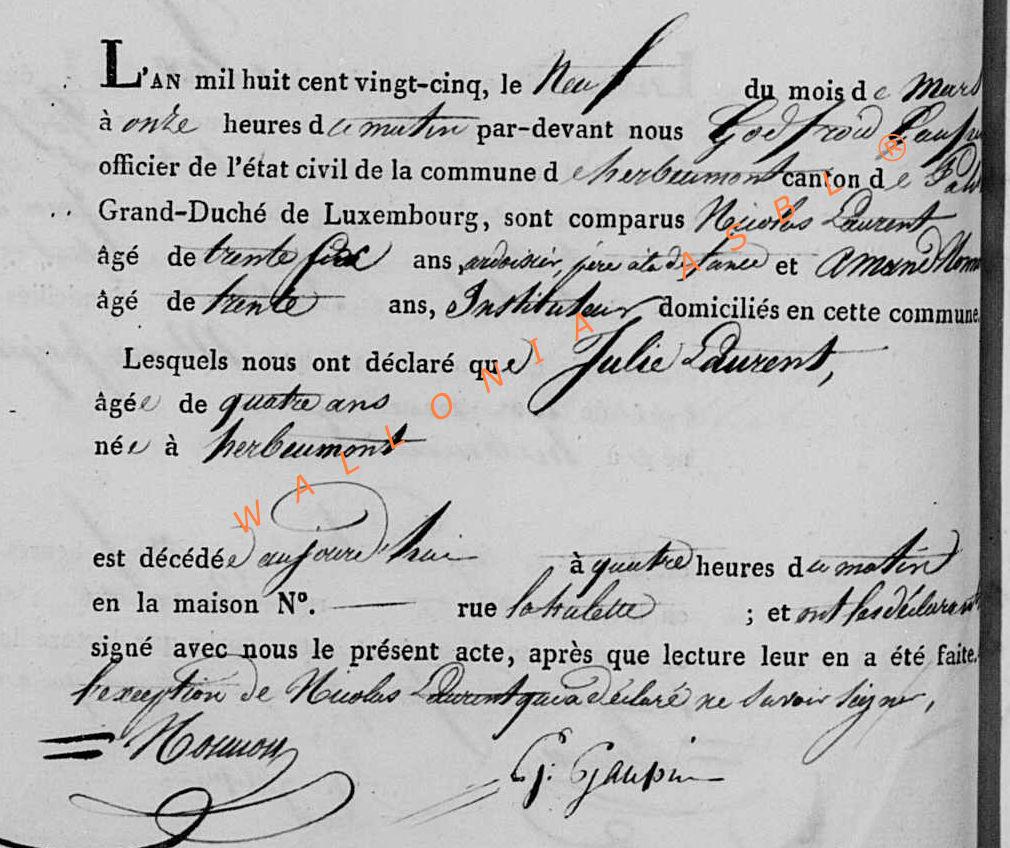 L'AN mil huit cent vingt-cinq, le Neuf du mois de Mars
à onze heures du matin par-devant nous Godfroid Gaupin
officier de l'état civil de la commune d'herbeumont canton de Pali
Grand-Duché de Luxembourg, sont comparus Nicolas Laurent
âgé de trente six ans, ardoisier, père à la défunte et Amand Nonnon
âgé de trente ans, Instituteur domiciliés en cette commune.
Lesquels nous ont déclaré que Julie Laurent,
âgée de quatre ans
née à herbeumont
est décédée aujourd'hui à quatre heures du matin
en la maison N°. — rue ; et ont les déclarants
signé avec nous le présent acte, après que lecture leur en a été faite.
l'exception de Nicolas Laurent qui a déclaré ne savoir signer,
Nonnon G: Gaupin
WALLONIA ASBL ®